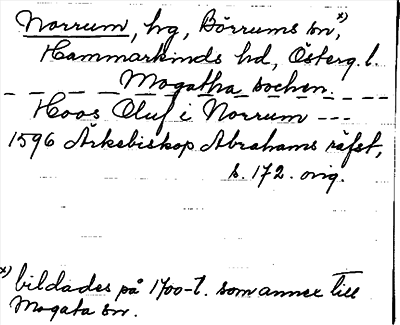 Norrum, hg, Börrums sn*),
Hammarkinds hd, Österg. l.
Mogatha sochen.
Hoos Oluf i Norrum ---
1596 Ärkebiskop Abrahams räfst,
s. 172. orig.
*) bildades på 1700-t. som annex till
Mogata sn.